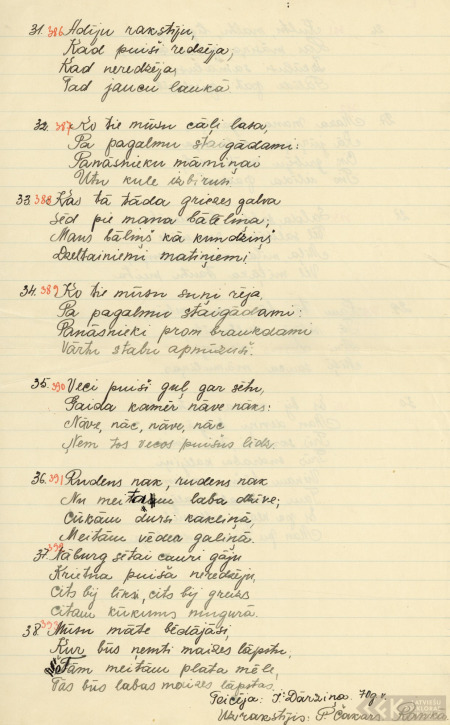 31. 386 Adīju rakstīju,
Kad puiši redzēja,
Kad neredzēja,
Tad jaucu laukā.
32. 387 Ko tie mūsu cāļi lasa,
Pa pagalmu staigādami:
Panāsnieku māmiņai
Utu kule izbirusi.
33. 388 Kas tā tāda griezes galva
Sēd pie mana bāleliņa;
Mans bāliņš kā kundziņš
Dzeltainiemi matiņiemi
34. 389 Ko tie mūsu suņi rēja,
Pa pagalmu staigādami:
Panāsnieki prom braukdami
Vārtu stabu apmīzuši.
35. 390 Veci puiši guļ gar sētu,
Gaida kamēr nāve nāks:
Nāve, nāc, nāve, nāc
Ņem tos vecos puišus līdz.
36. 391 Rudens nak, rudens nak
Nu meitām laba dzīve;
Cūkām dursi kakliņā,
Meitām vēdeŗ galiņā.
37. 392 Kāburg sētai cauri gāju
Krietna puiša neredzēju,
Cits bij līksi, cits bij greizs
Citam kūkums mugurā.
38. 393 Mūsu māte bēdājās,
Kur būs ņemti maizes lāpstu,
Tām meitām plata mēle,
Tās būs labas maizes lāpstas.
Teicēja: I. Dārziņa 70 g.v.
Uzrakstījis: P.
LATVIEŠU